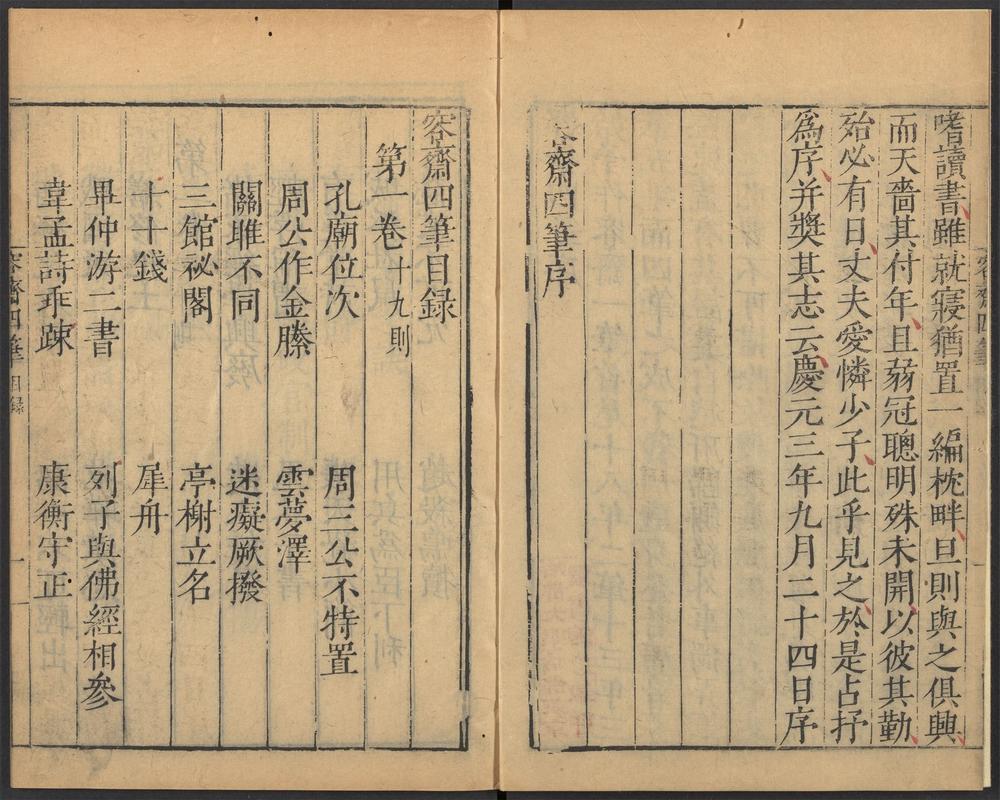 嗜讀書雖就寢猶置一編枕畔旦則與之俱興
而天嗇其付年且弱冠聰明殊未開以彼其勤
殆必有日丈夫愛憐少子此乎見之於是占抒
爲序并奬其志云慶元三年九月二十四日序
容齋四筆序
容齋四筆目録
第一卷十九則
孔廟位次 周三公不特置
周公作金縢 雲夢澤
關雎不同 迷癡厥撥
三館祕閣 亭榭立名
十十錢 犀舟
畢仲游二書 列子與佛經相參
韋孟詩乖踈 康衡守正
容齋四筆目録 一